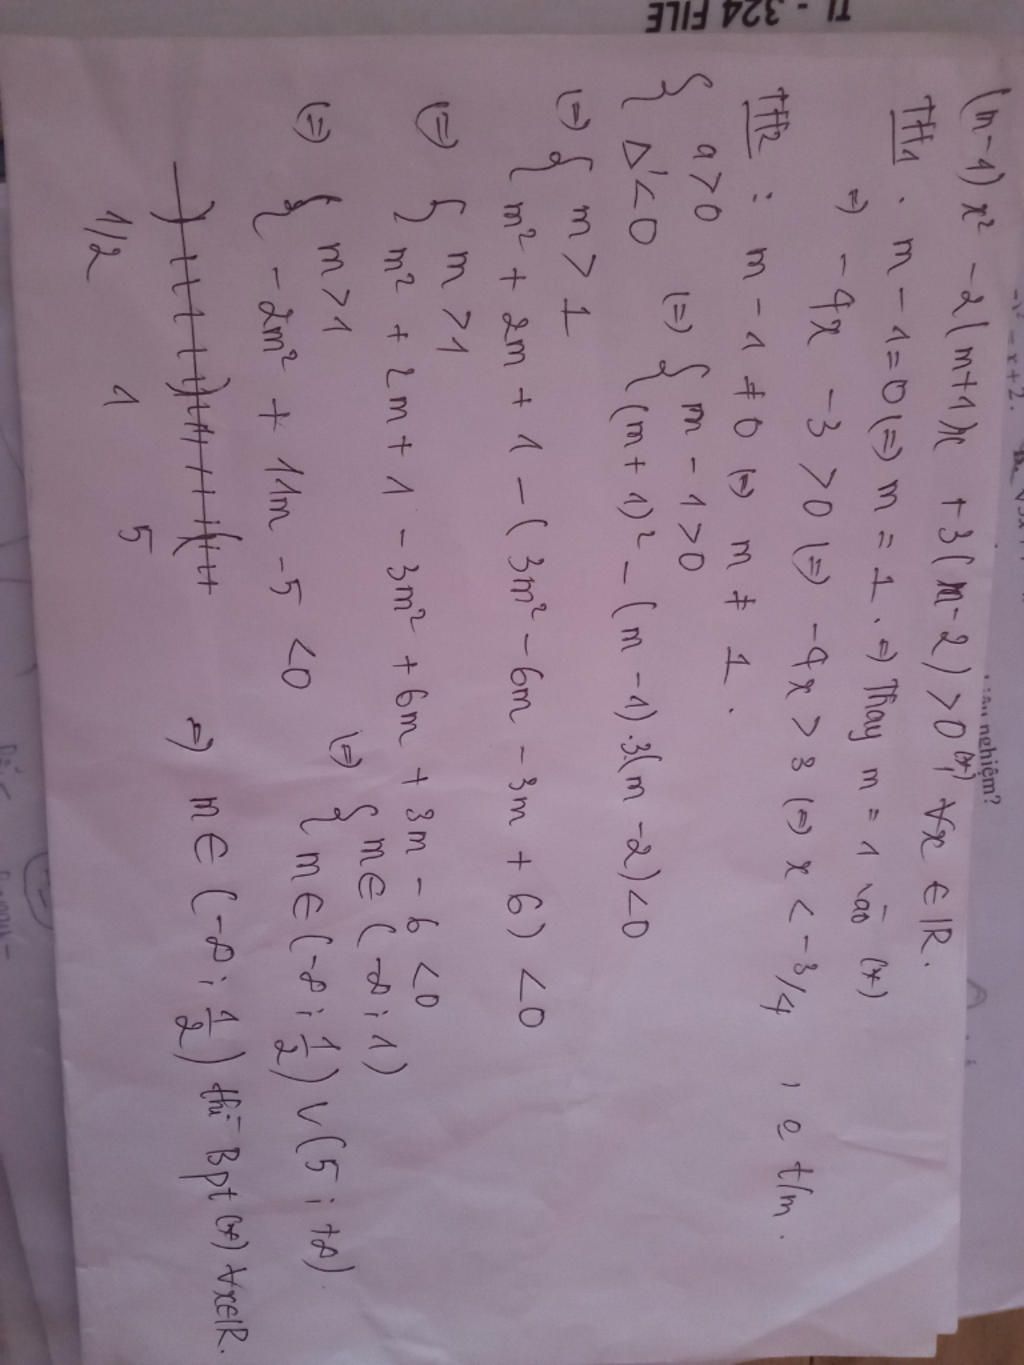 TL - 324 FILE
(m-1)x² - 2(m+1)x + 3(m-2) > 0 (*) ∀x ∈ ℝ.
TH1. m - 1 = 0 (=) m = 1. => Thay m = 1 vào (*)
=) -4x - 3 > 0 (=) -4x > 3 (=) x < -3/4, o t/m.
TH2: m - 1 ≠ 0 (=) m ≠ 1.
{ a > 0 (=) { m - 1 > 0
Δ' < 0 (m+1)² - (m-1).3(m-2) < 0
(=) { m > 1
m² + 2m + 1 - (3m² - 6m - 3m + 6) < 0
(=) { m > 1
m² + 2m + 1 - 3m² + 6m + 3m - 6 < 0
(=) { m > 1 (=) { m ∈ (-∞; 1)
-2m² + 11m - 5 < 0 m ∈ (-∞; 1/2) ∪ (5; +∞).
1/2 1 5
=) m ∈ (-∞; 1/2) thì Bpt (*) ∀x∈ℝ.
nghiệm?